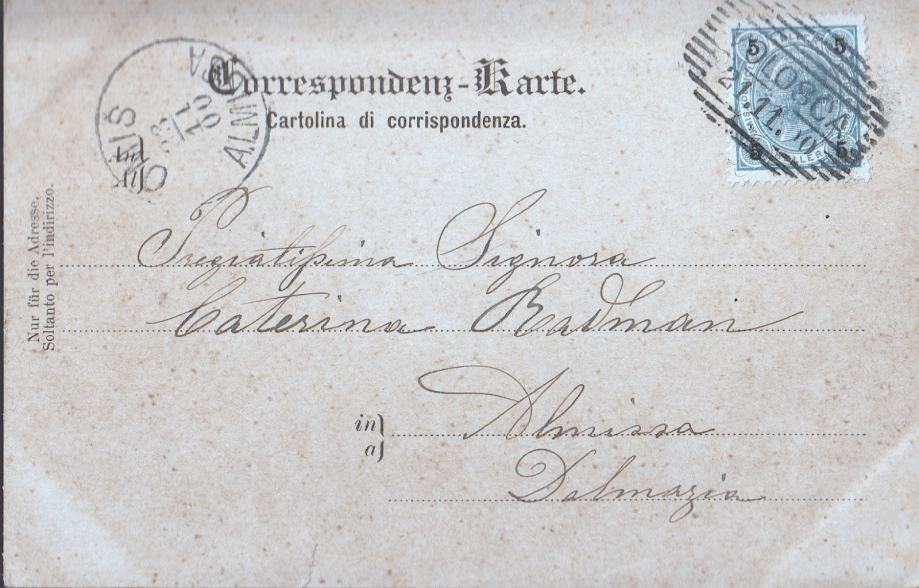 Correspondenz-Karte.
Cartolina di corrispondenza.
OMIŠ
ALMISSA
5 5
5 5
Nur für die Adresse.
Soltanto per l'indirizzo.
An
Pregiatissima Signora
Caterina Radman
in) Almissa
a)
Dalmazia